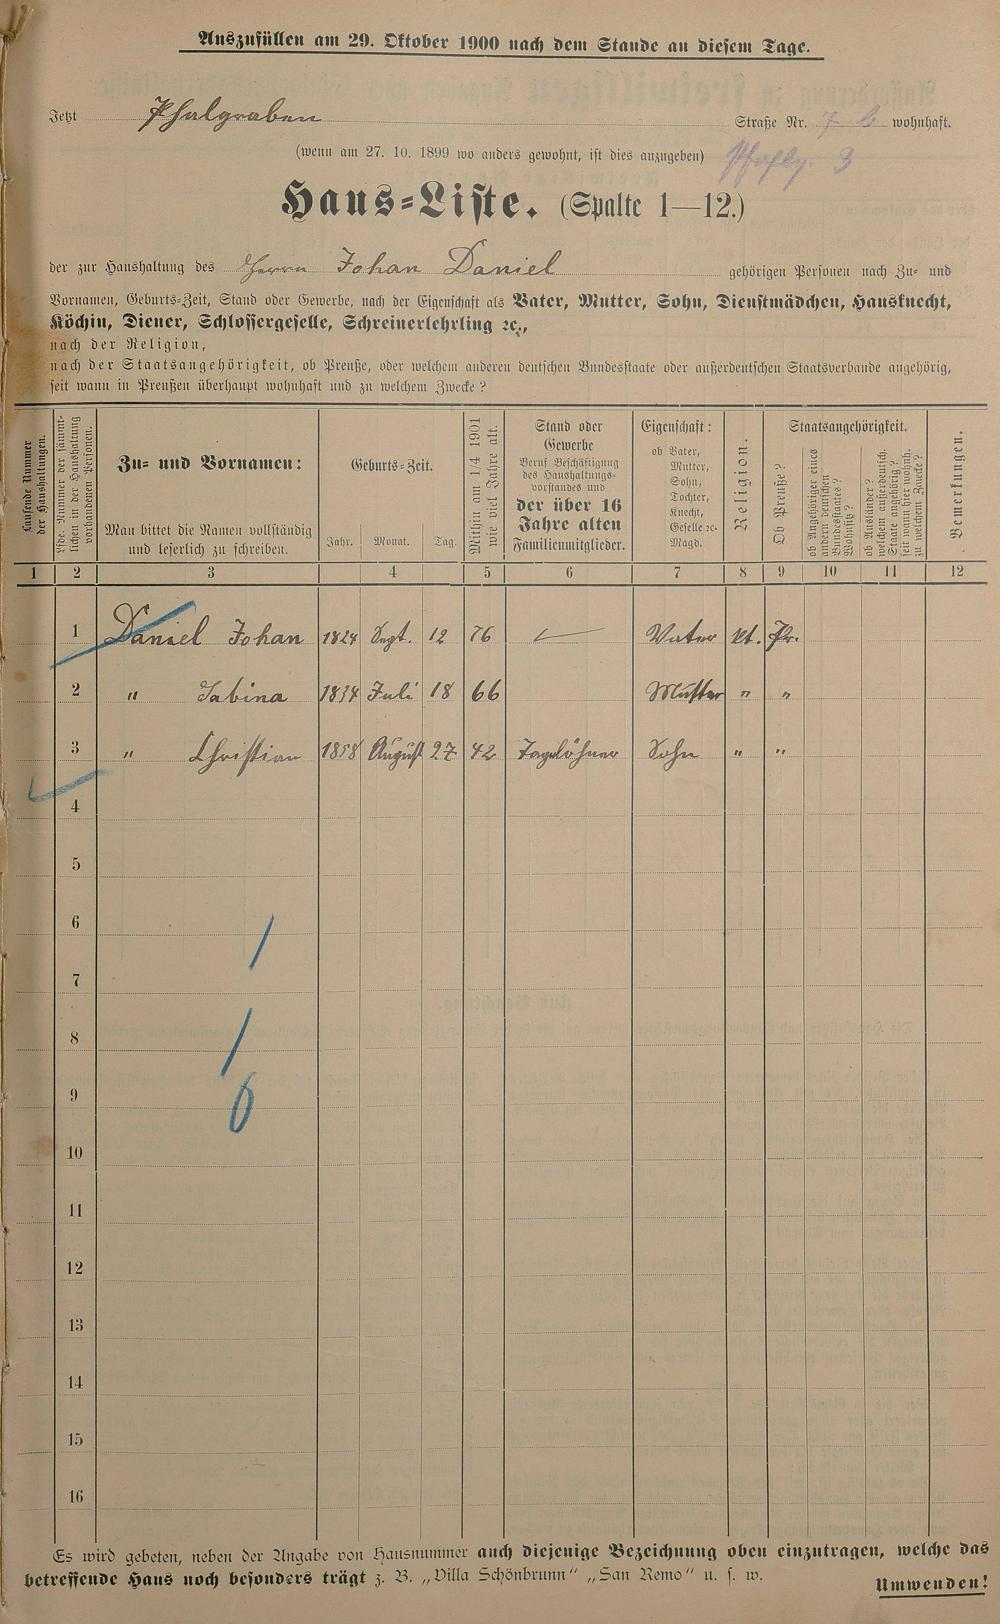 Auszufüllen am 29. Oktober 1900 nach dem Stande an diesem Tage.
Jetzt Phalgraben Straße Nr. 7 b wohnhaft.
(wenn am 27. 10. 1899 wo anders gewohnt, ist dies anzugeben) 3
Haus-Liste. (Spalte 1—12.)
der zur Haushaltung des Herrn Johan Daniel gehörigen Personen nach Zu- und
Vornamen, Geburts-Zeit, Stand oder Gewerbe, nach der Eigenschaft als Vater, Mutter, Sohn, Dienstmädchen, Hausknecht,
Köchin, Diener, Schlossergeselle, Schreinerlehrling ꝛc.,
nach der Religion,
nach der Staatsangehörigkeit, ob Preuße, oder welchem anderen deutschen Bundesstaate oder außerdeutschen Staatsverbande angehörig,
seit wann in Preußen überhaupt wohnhaft und zu welchem Zwecke?
Laufende Nummer
der Haushaltungen.
Lfde. Nummer der sämmt-
lichen in der Haushaltung
vorhandenen Personen.
Zu- und Vornamen:
Man bittet die Namen vollständig
und leserlich zu schreiben.
Geburts-Zeit.
Jahr. Monat. Tag.
Mithin am 1/4 1901
wie viel Jahre alt.
Stand oder
Gewerbe
Beruf Beschäftigung
des Haushaltungs-
vorstandes und
der über 16
Jahre alten
Familienmitglieder.
Eigenschaft:
ob Vater,
Mutter,
Sohn,
Tochter,
Knecht,
Geselle ꝛc.
Magd.
Religion.
Staatsangehörigkeit.
Ob Preuße?
ob Angehöriger eines
anderen deutschen
Bundesstaates?
Wohnsitz?
ob Ausländer?
welchem außerdeutsch.
Staate angehörig?
seit wann hier wohnh.
zu welchem Zwecke?
Bemerkungen.
1 2 3 4 5 6 7 8 9 10 11 12
1 Daniel Johan 1824 Sept. 12 76 — Vater kt. Pr.
2 " Sabina 1834 Juli 18 66 Mutter " "
3 " Christian 1858 August 27 42 Tagelöhner Sohn " "
4
5
6
7
8
9
10
11
12
13
14
15
16
Es wird gebeten, neben der Angabe von Hausnummer auch diejenige Bezeichnung oben einzutragen, welche das
betreffende Haus noch besonders trägt z. B. „Villa Schönbrunn" „San Remo" u. s. w.
Umwenden!